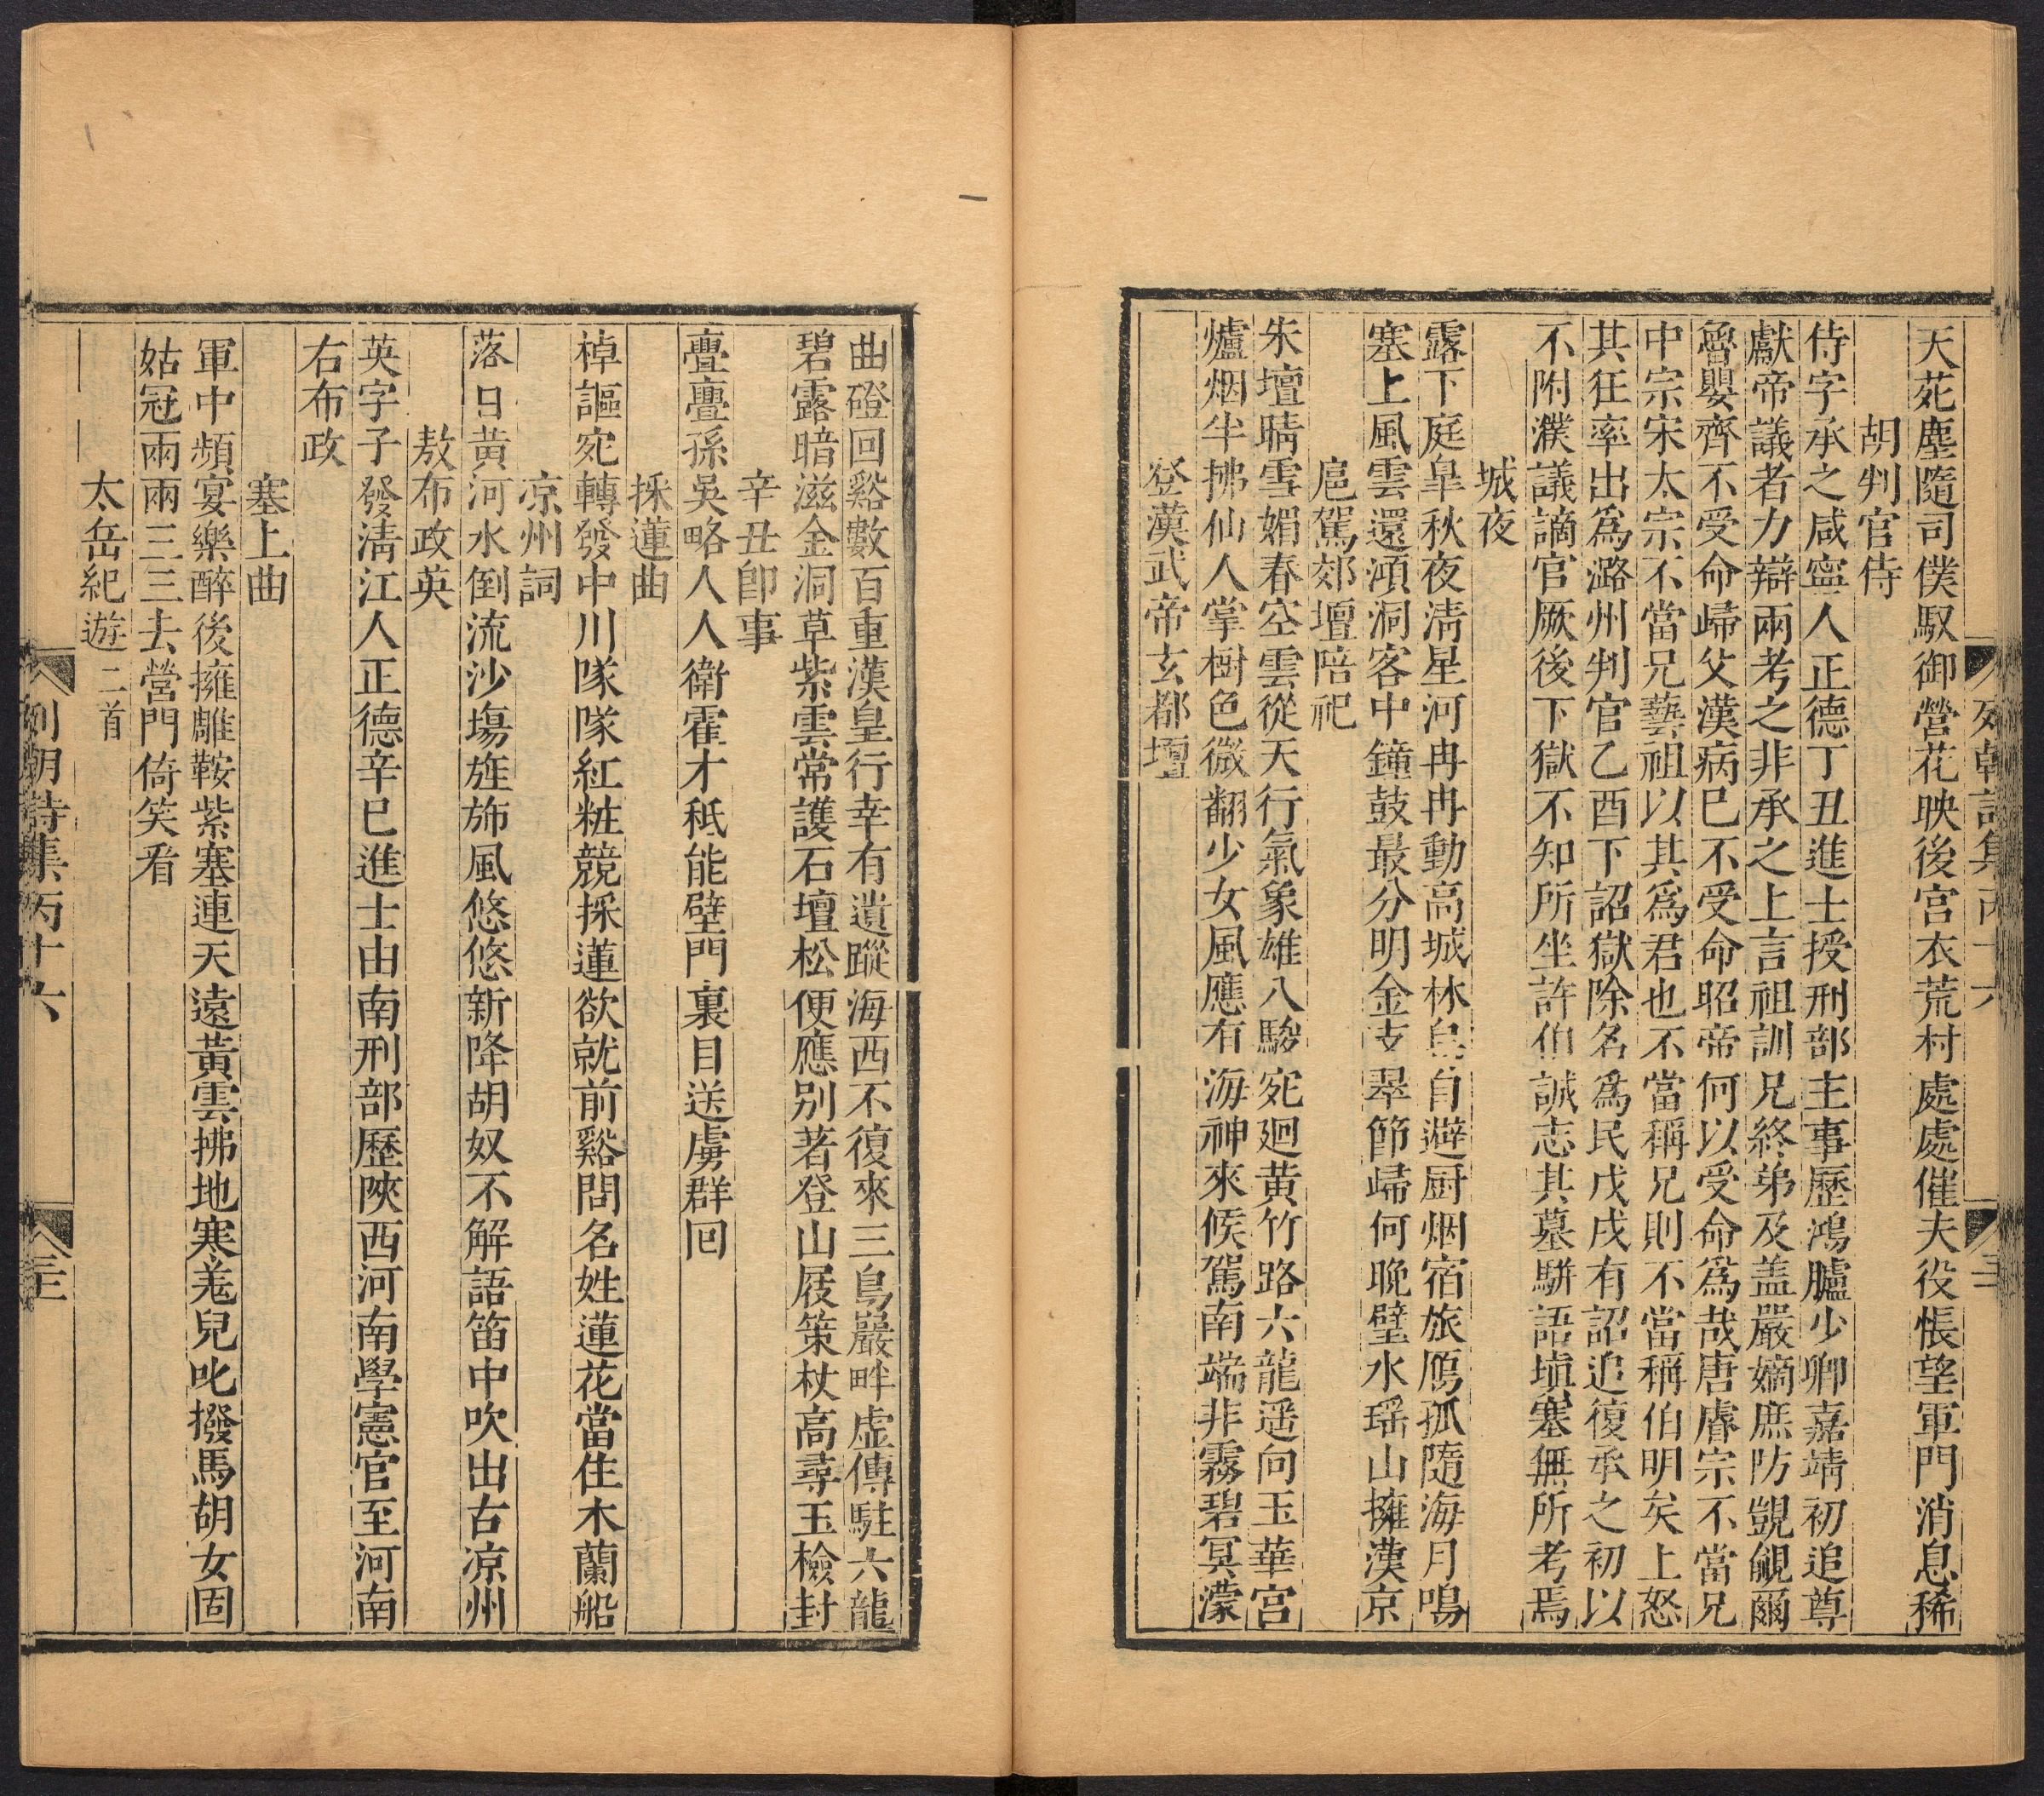 天苑塵隨司僕馭御營花映後宮衣荒村處處催夫役悵望軍門消息稀
胡判官侍
侍字承之咸寧人正德丁丑進士授刑部主事歷鴻臚少卿嘉靖初追尊
獻帝議者力辯兩考之非承之上言祖訓兄終弟及盖嚴嫡庶防覬覦爾
魯嬰齊不受命歸父漢病已不受命昭帝何以受命爲哉唐睿宗不當兄
中宗宋太宗不當兄藝祖以其爲君也不當稱兄則不當稱伯明矣上怒
其狂率出爲潞州判官乙酉下詔獄除名爲民戊戌有詔追復承之初以
不附濮議謫官厥後下獄不知所坐許伯誠志其墓駢語塡塞無所考焉
城夜
露下庭皐秋夜淸星河冉冉動高城林烏自避厨烟宿旅鴈孤隨海月鳴
塞上風雲還澒洞客中鐘鼓最分明金支翠節歸何晚璧水瑶山擁漢京
扈駕郊壇陪祀
朱壇晴雪媚春空雲從天行氣象雄八駿宛廻黄竹路六龍遥向玉華宮
爐烟半拂仙人掌樹色微翻少女風應有海神來候駕南端非霧碧冥濛
登漢武帝玄都壇
曲磴回谿數百重漢皇行幸有遺蹤海西不復來三鳥巖畔虚傳駐六龍
碧露暗滋金洞草紫雲常護石壇松便應别著登山屐策杖高尋玉檢封
辛丑卽事
疊疊孫吳略人人衛霍才秖能壁門裏目送虜群回
採蓮曲
棹謳宛轉發中川隊隊紅粧競採蓮欲就前谿問名姓蓮花當住木蘭船
凉州詞
落日黄河水倒流沙塲旌斾風悠悠新降胡奴不解語笛中吹出古凉州
敖布政英
英字子發淸江人正德辛巳進士由南刑部歷陝西河南學憲官至河南
右布政
塞上曲
軍中頻宴樂醉後擁雕鞍紫塞連天遠黃雲拂地寒羌兒叱撥馬胡女固
姑冠兩兩三三去營門倚笑看
太岳紀遊二首
列朝詩集丙十六
三十